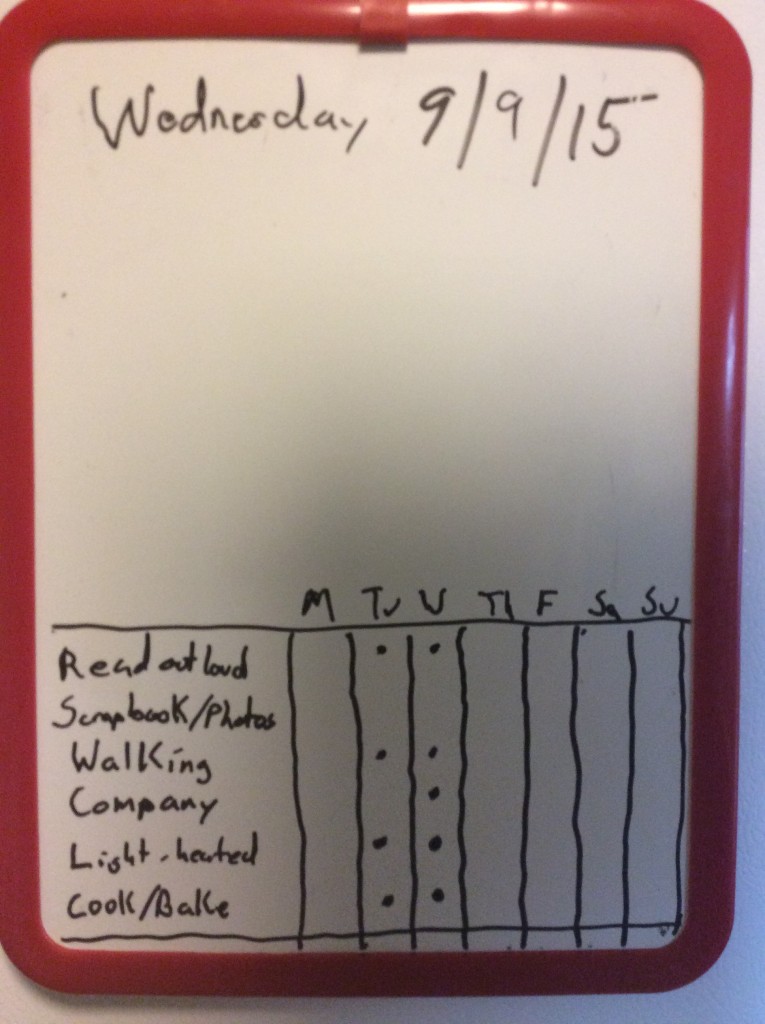 Wednesday 9/9/15
M Tu W Th F Sa Su
Read out loud • •
Scrapbook/Photos
Walking • •
Company •
Light-hearted • •
Cook/Bake • •